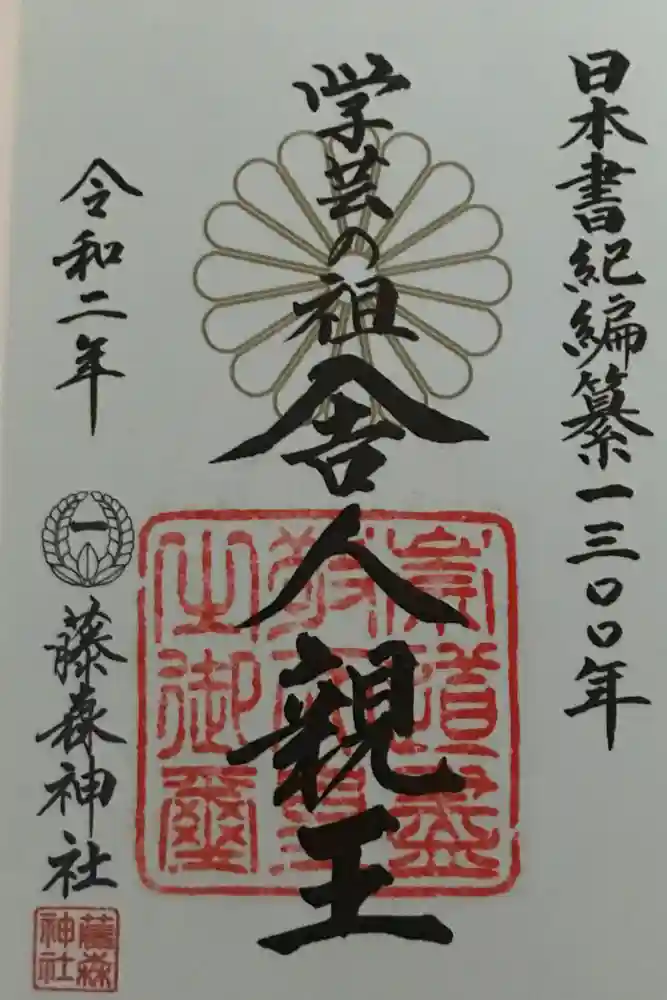 日本書紀編纂一三〇〇年
学芸の祖
舎人親王
令和二年
一
藤森神社
藤森神社